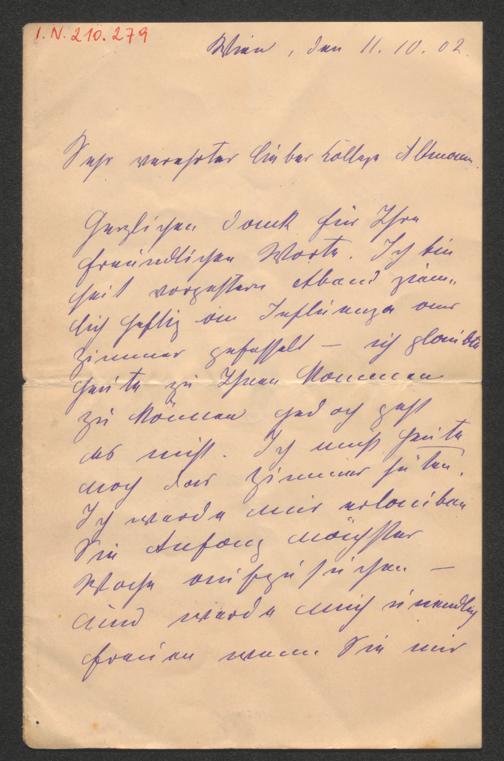 I.N. 210.279
Wien, den 11.10.02.
Sehr verehrter lieber College Altmann.
Herzlichen Dank für Ihre
freundlichen Worte. Ich bin
seit vorgestern Abend ziem-
lich heftig an Influenza ans
Zimmer gefesselt – ich glaubte
heute zu Ihnen kommen
zu können jedoch geht
es nicht. Ich muß heute
noch das Zimmer hüten.
Ich werde mir erlauben
Sie Anfang nächster
Woche aufzusuchen –
und werde mich unendlich
freuen wenn Sie mir